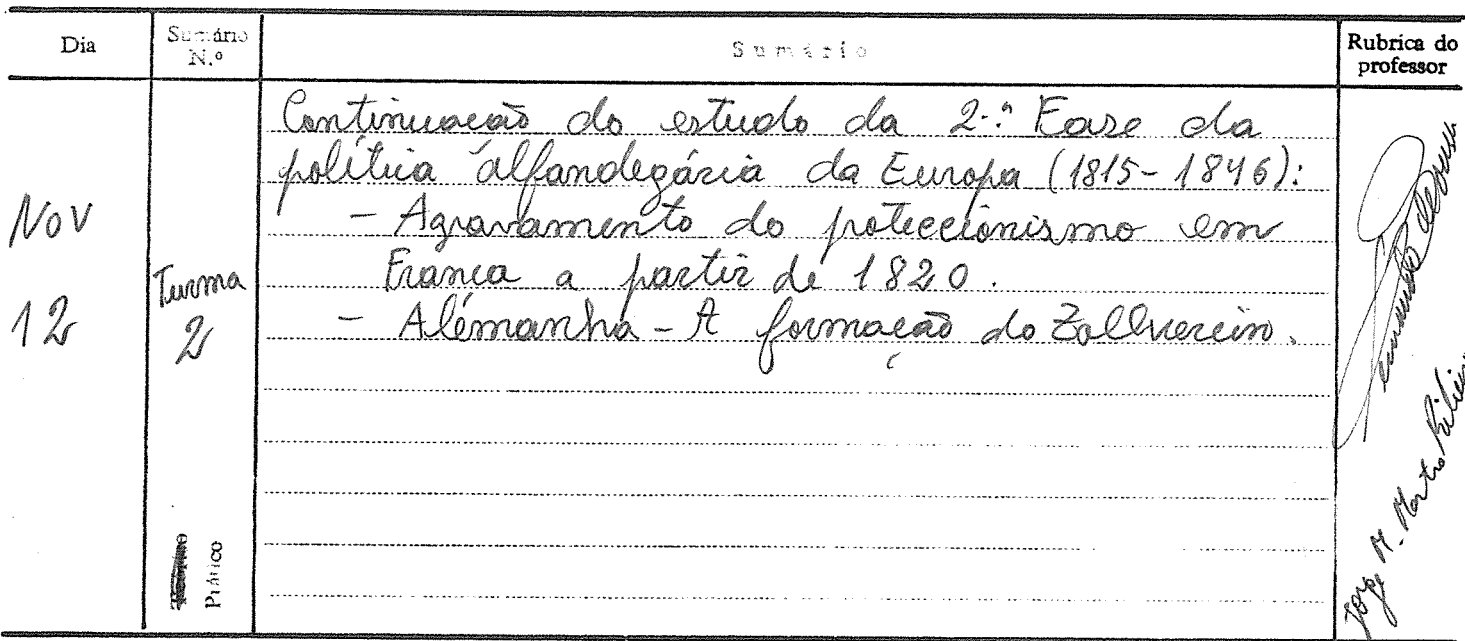 Dia
Sumário
N.º
Sumário
Rubrica do
professor
Nov
12
Turma
2
Prático
Continuação do estudo da 2.ª Fase da
política alfandegária da Europa (1815-1846):
- Agravamento do proteccionismo em
França a partir de 1820.
- Alemanha - A formação do Zollverein.
Jorge M.